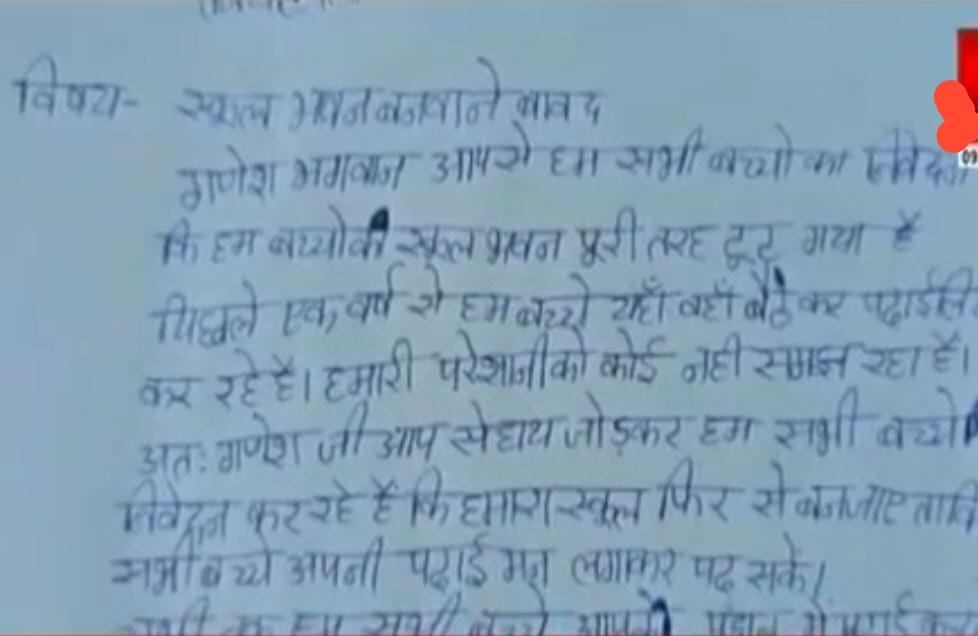 विषय- स्कूल भवन बनवाने बावद
गणेश भगवान आपसे हम सभी बच्चो का निवेदन
कि हम बच्चोकी स्कूल भवन पूरी तरह टूट गया है
पिछले एक वर्ष से हम बच्चे यहाँ वहाँ बैठकर पढ़ाई
कर रहे है। हमारी परेशानी को कोई नही समझ रहा है।
अतः गणेश जी आप से हाथ जोड़कर हम सभी बच्चे
निवेदन कर रहे है कि हमारा स्कूल फिर से बन जाए ताकि
सभी बच्चे अपनी पढ़ाई मन लगाकर पढ़ सके।
हम सभी बच्चे
09